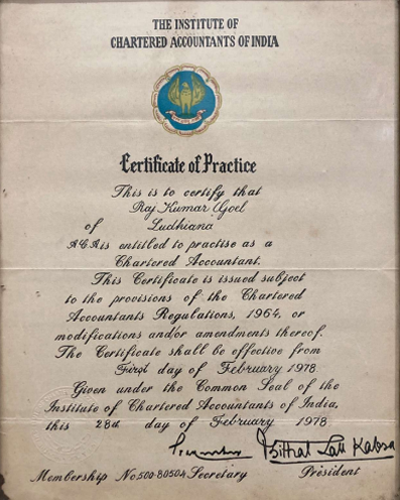 THE INSTITUTE OF
CHARTERED ACCOUNTANTS OF INDIA
Certificate of Practice
This is to certify that
Raj Kumar Goel
of Ludhiana
A.C.A is entitled to practise as a
Chartered Accountant.
This Certificate is issued subject
to the provisions of the Chartered
Accountants Regulations, 1964, or
modifications and/or amendments thereof.
The Certificate shall be effective from
First day of February 1978
Given under the Common Seal of the
Institute of Chartered Accountants of India,
this 28th day of February 1978
Bithal Lall Kabra
Membership No. 500-80504 Secretary President